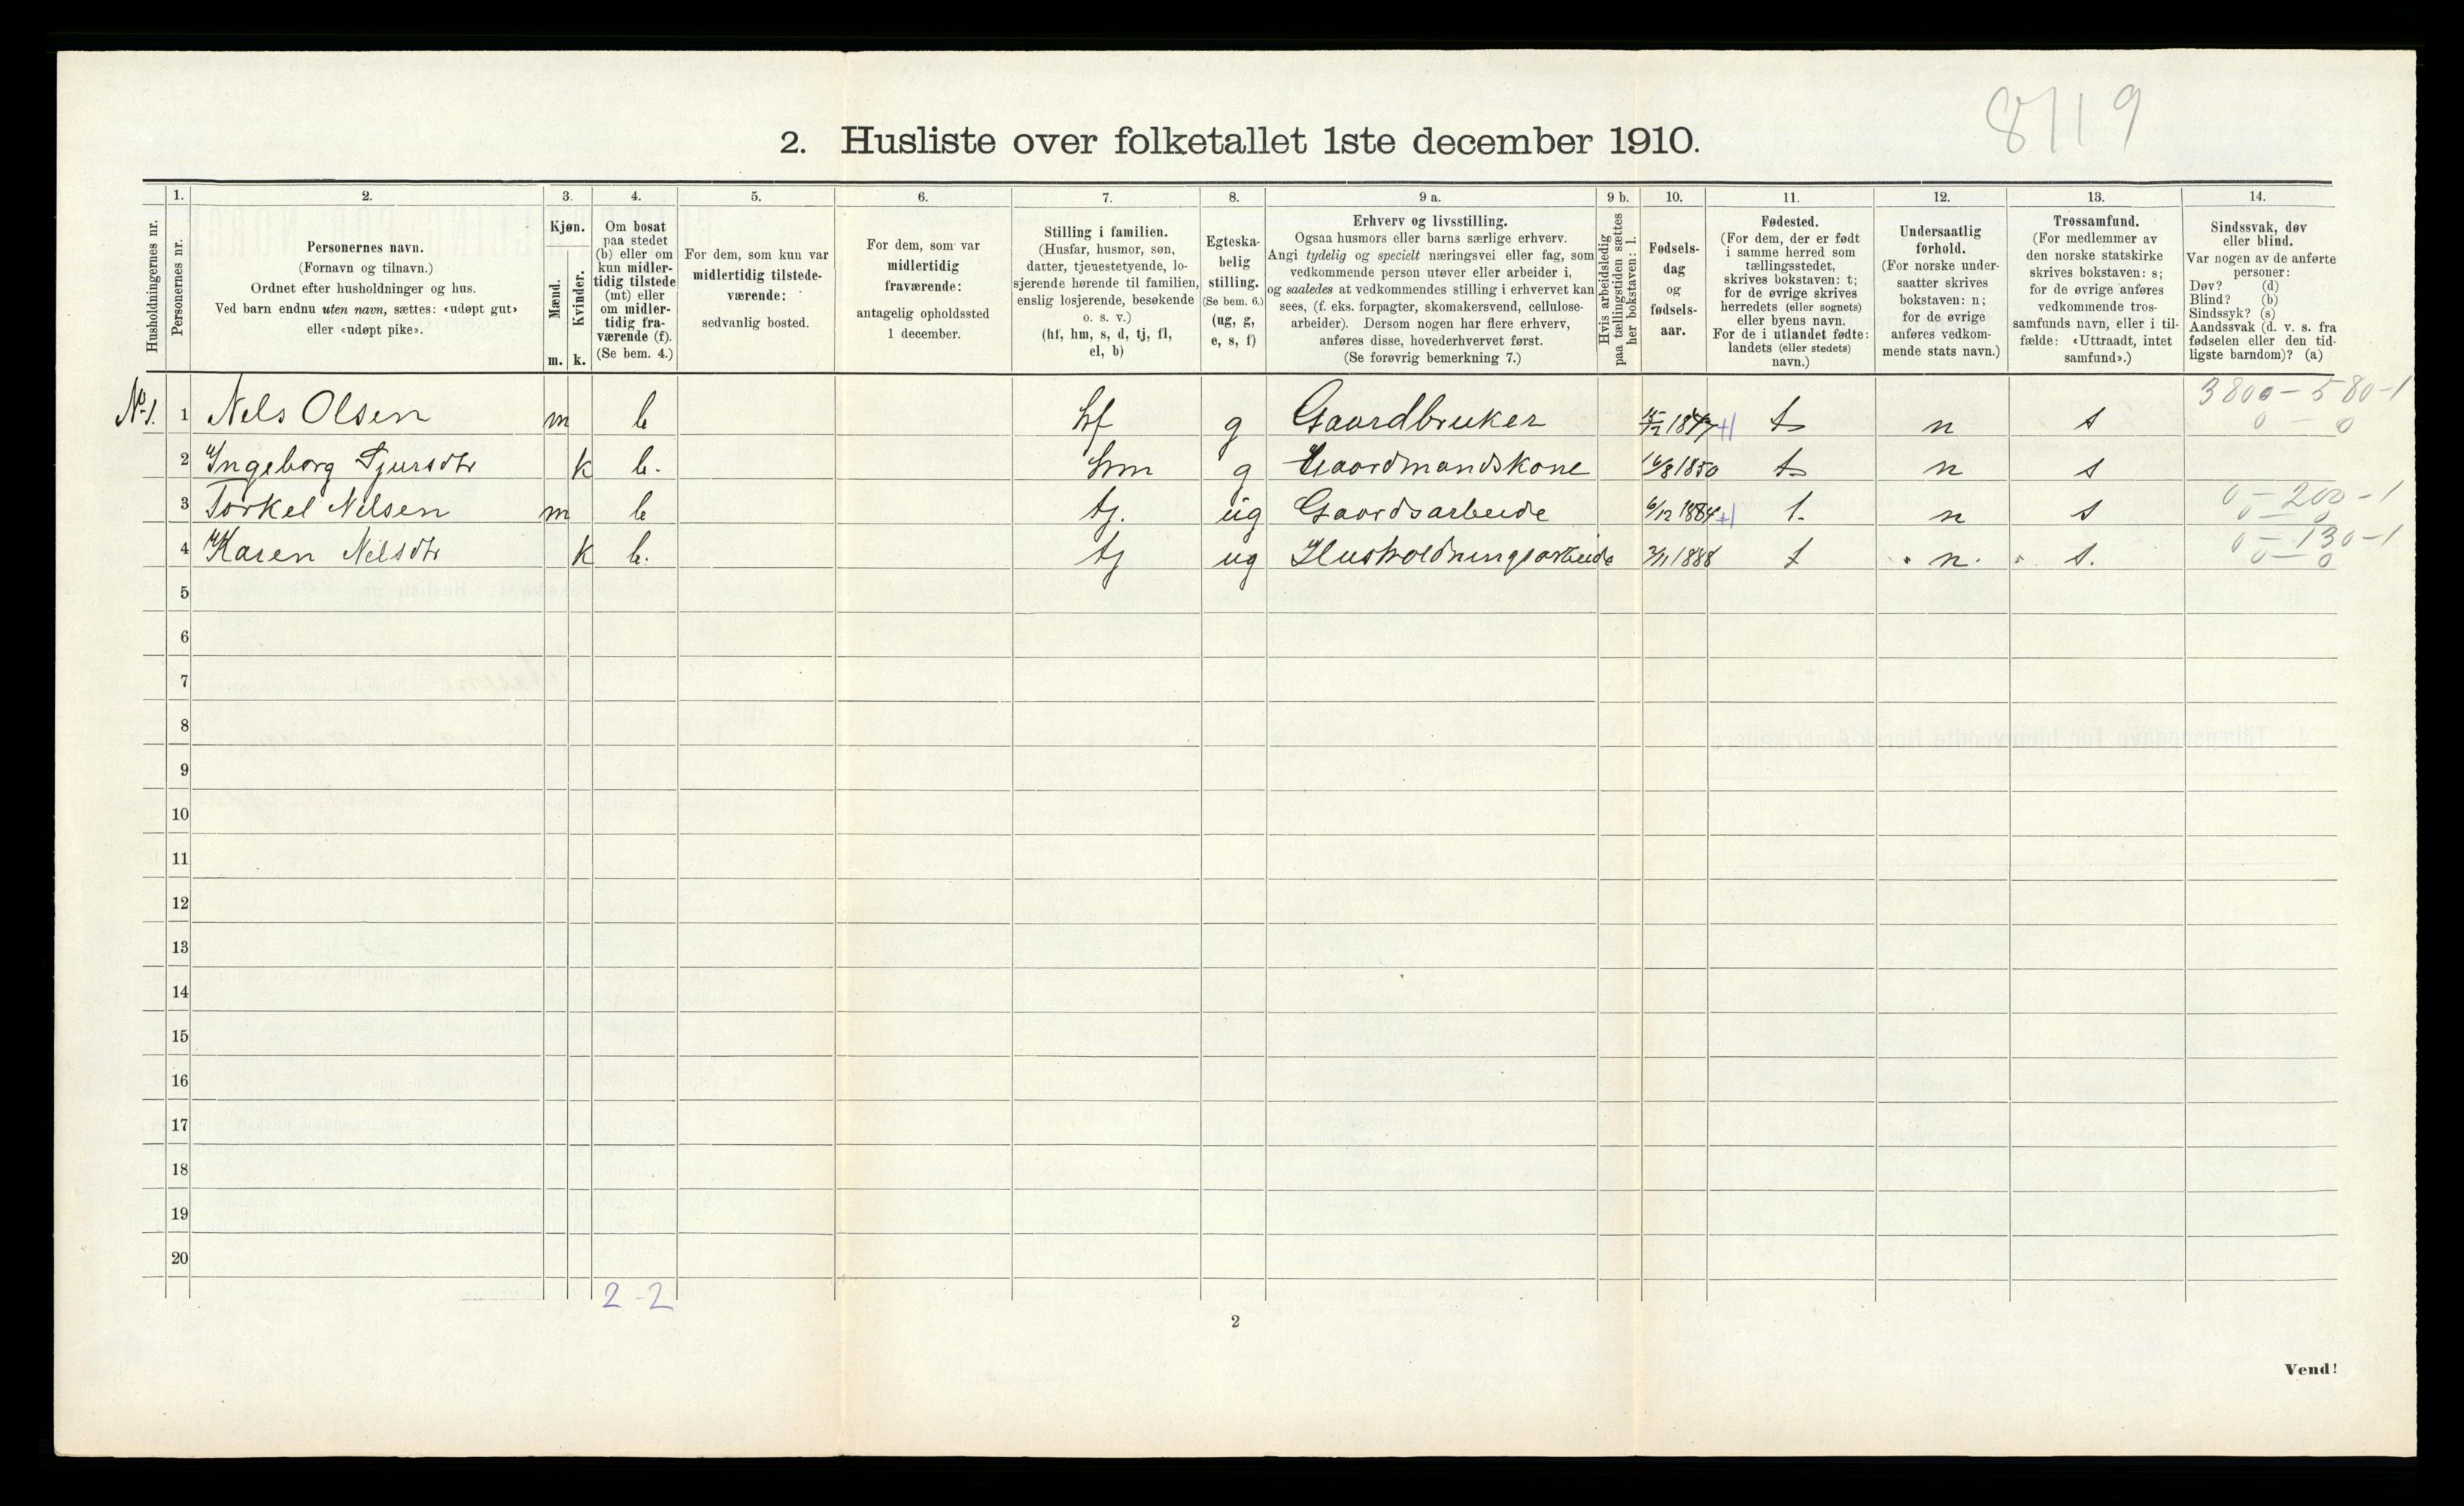 8719
2. Husliste over folketallet 1ste december 1910.
1. 2. 3. 4. 5. 6. 7. 8. 9 a. 9 b. 10. 11. 12. 13. 14.
Husholdningernes nr.
Personernes nr.
Personernes navn.
(Fornavn og tilnavn.)
Ordnet efter husholdninger og hus.
Ved barn endnu uten navn, sættes: «udøpt gut»
eller «udøpt pike».
Kjøn.
Mænd.
Kvinder.
m. k.
Om bosat
paa stedet
(b) eller om
kun midler-
tidig tilstede
(mt) eller
om midler-
tidig fra-
værende (f).
(Se bem. 4.)
For dem, som kun var
midlertidig tilstede-
værende:
sedvanlig bosted.
For dem, som var
midlertidig
fraværende:
antagelig opholdssted
1 december.
Stilling i familien.
(Husfar, husmor, søn,
datter, tjenestetyende, lo-
sjerende hørende til familien,
enslig losjerende, besøkende
o. s. v.)
(hf, hm, s, d, tj, fl,
el, b)
Egteska-
belig
stilling.
(Se bem. 6.)
(ug, g,
e, s, f)
Erhverv og livsstilling.
Ogsaa husmors eller barns særlige erhverv.
Angi tydelig og specielt næringsvei eller fag, som
vedkommende person utøver eller arbeider i,
og saaledes at vedkommendes stilling i erhvervet kan
sees, (f. eks. forpagter, skomakersvend, cellulose-
arbeider). Dersom nogen har flere erhverv,
anføres disse, hovederhvervet først.
(Se forøvrig bemerkning 7.)
Hvis arbeidsledig
paa tællingstiden sættes
her bokstaven: l.
Fødsels-
dag
og
fødsels-
aar.
Fødested.
(For dem, der er født
i samme herred som
tællingsstedet,
skrives bokstaven: t;
for de øvrige skrives
herredets (eller sognets)
eller byens navn.
For de i utlandet fødte:
landets (eller stedets)
navn.)
Undersaatlig
forhold.
(For norske under-
saatter skrives
bokstaven: n;
for de øvrige
anføres vedkom-
mende stats navn.)
Trossamfund.
(For medlemmer av
den norske statskirke
skrives bokstaven: s;
for de øvrige anføres
vedkommende tros-
samfunds navn, eller i til-
fælde: «Uttraadt, intet
samfund».)
Sindssvak, døv
eller blind.
Var nogen av de anførte
personer:
Døv? (d)
Blind? (b)
Sindssyk? (s)
Aandssvak (d. v. s. fra
fødselen eller den tid-
ligste barndom)? (a)
3800 - 580 - 1
No 1. 1 Nels Olsen m b hf g Gaardbruker 15/12 1847 +1 t n s 0 - 0
2 Ingeborg Sjursdtr k b. hm g Gaardmandskone 16/8 1850 t n s
0 - 200 - 1
3 Torkel Nelsen m b tj. ug Gaardsarbeide 6/12 1884 +1 t. n s 0 - 0
0 - 130 - 1
4 Karen Nelsdtr k b. tj ug Husholdningsarbeide 3/11 1888 t n. s. 0 - 0
5
6
7
8
9
10
11
12
13
14
15
16
17
18
19
20
2 - 2
2
Vend!